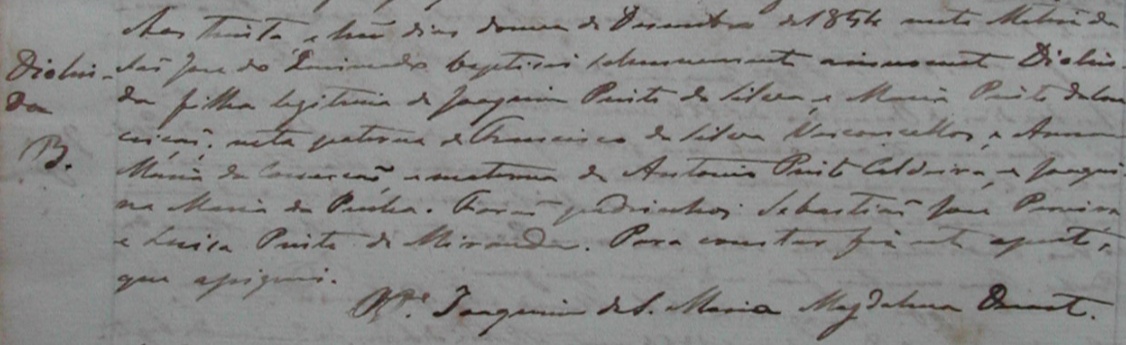 Aos trinta e hum dias do mez de Dezembro de 1854 nesta Matriz de
Diolin- São José do baptisei solemnemente a innocente Diolin-
da da filha legitima de Joaquim Pinto da Silva, e Maria Pinto da Con
ceição, neta paterna de Francisco da Silva Vasconcellos, e Anna
B. Maria da Conceição e materna de Antonio Pinto Caldeira, e Joaqui-
na Maria da Penha. Forão padrinhos Sebastião José Pereira
e Luisa Pinta de Miranda. Para constar fiz este apont.,
que assignei.
Joaquim de S. Maria Magdalena Duart.